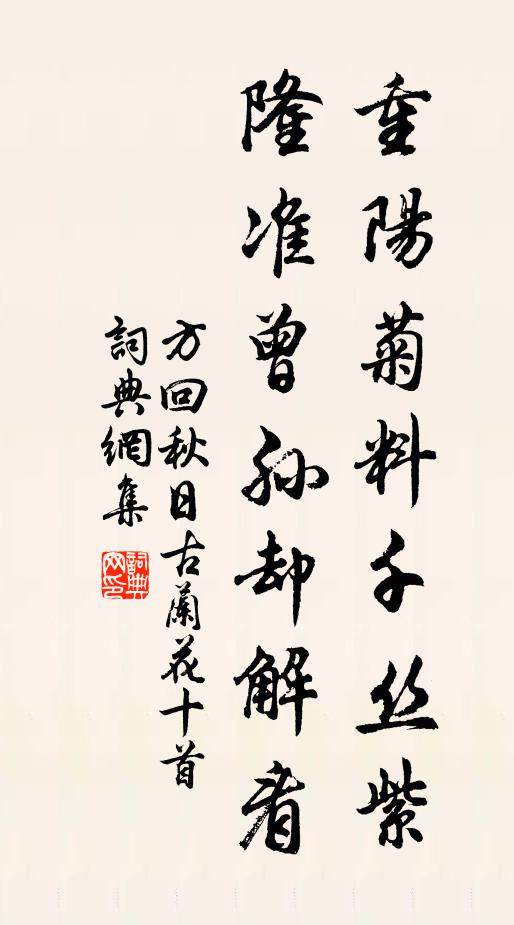 重陽菊料千丝紫
隆准曾孙却解看
方回秋日古蘭花十首
詞典網集
詞典网印